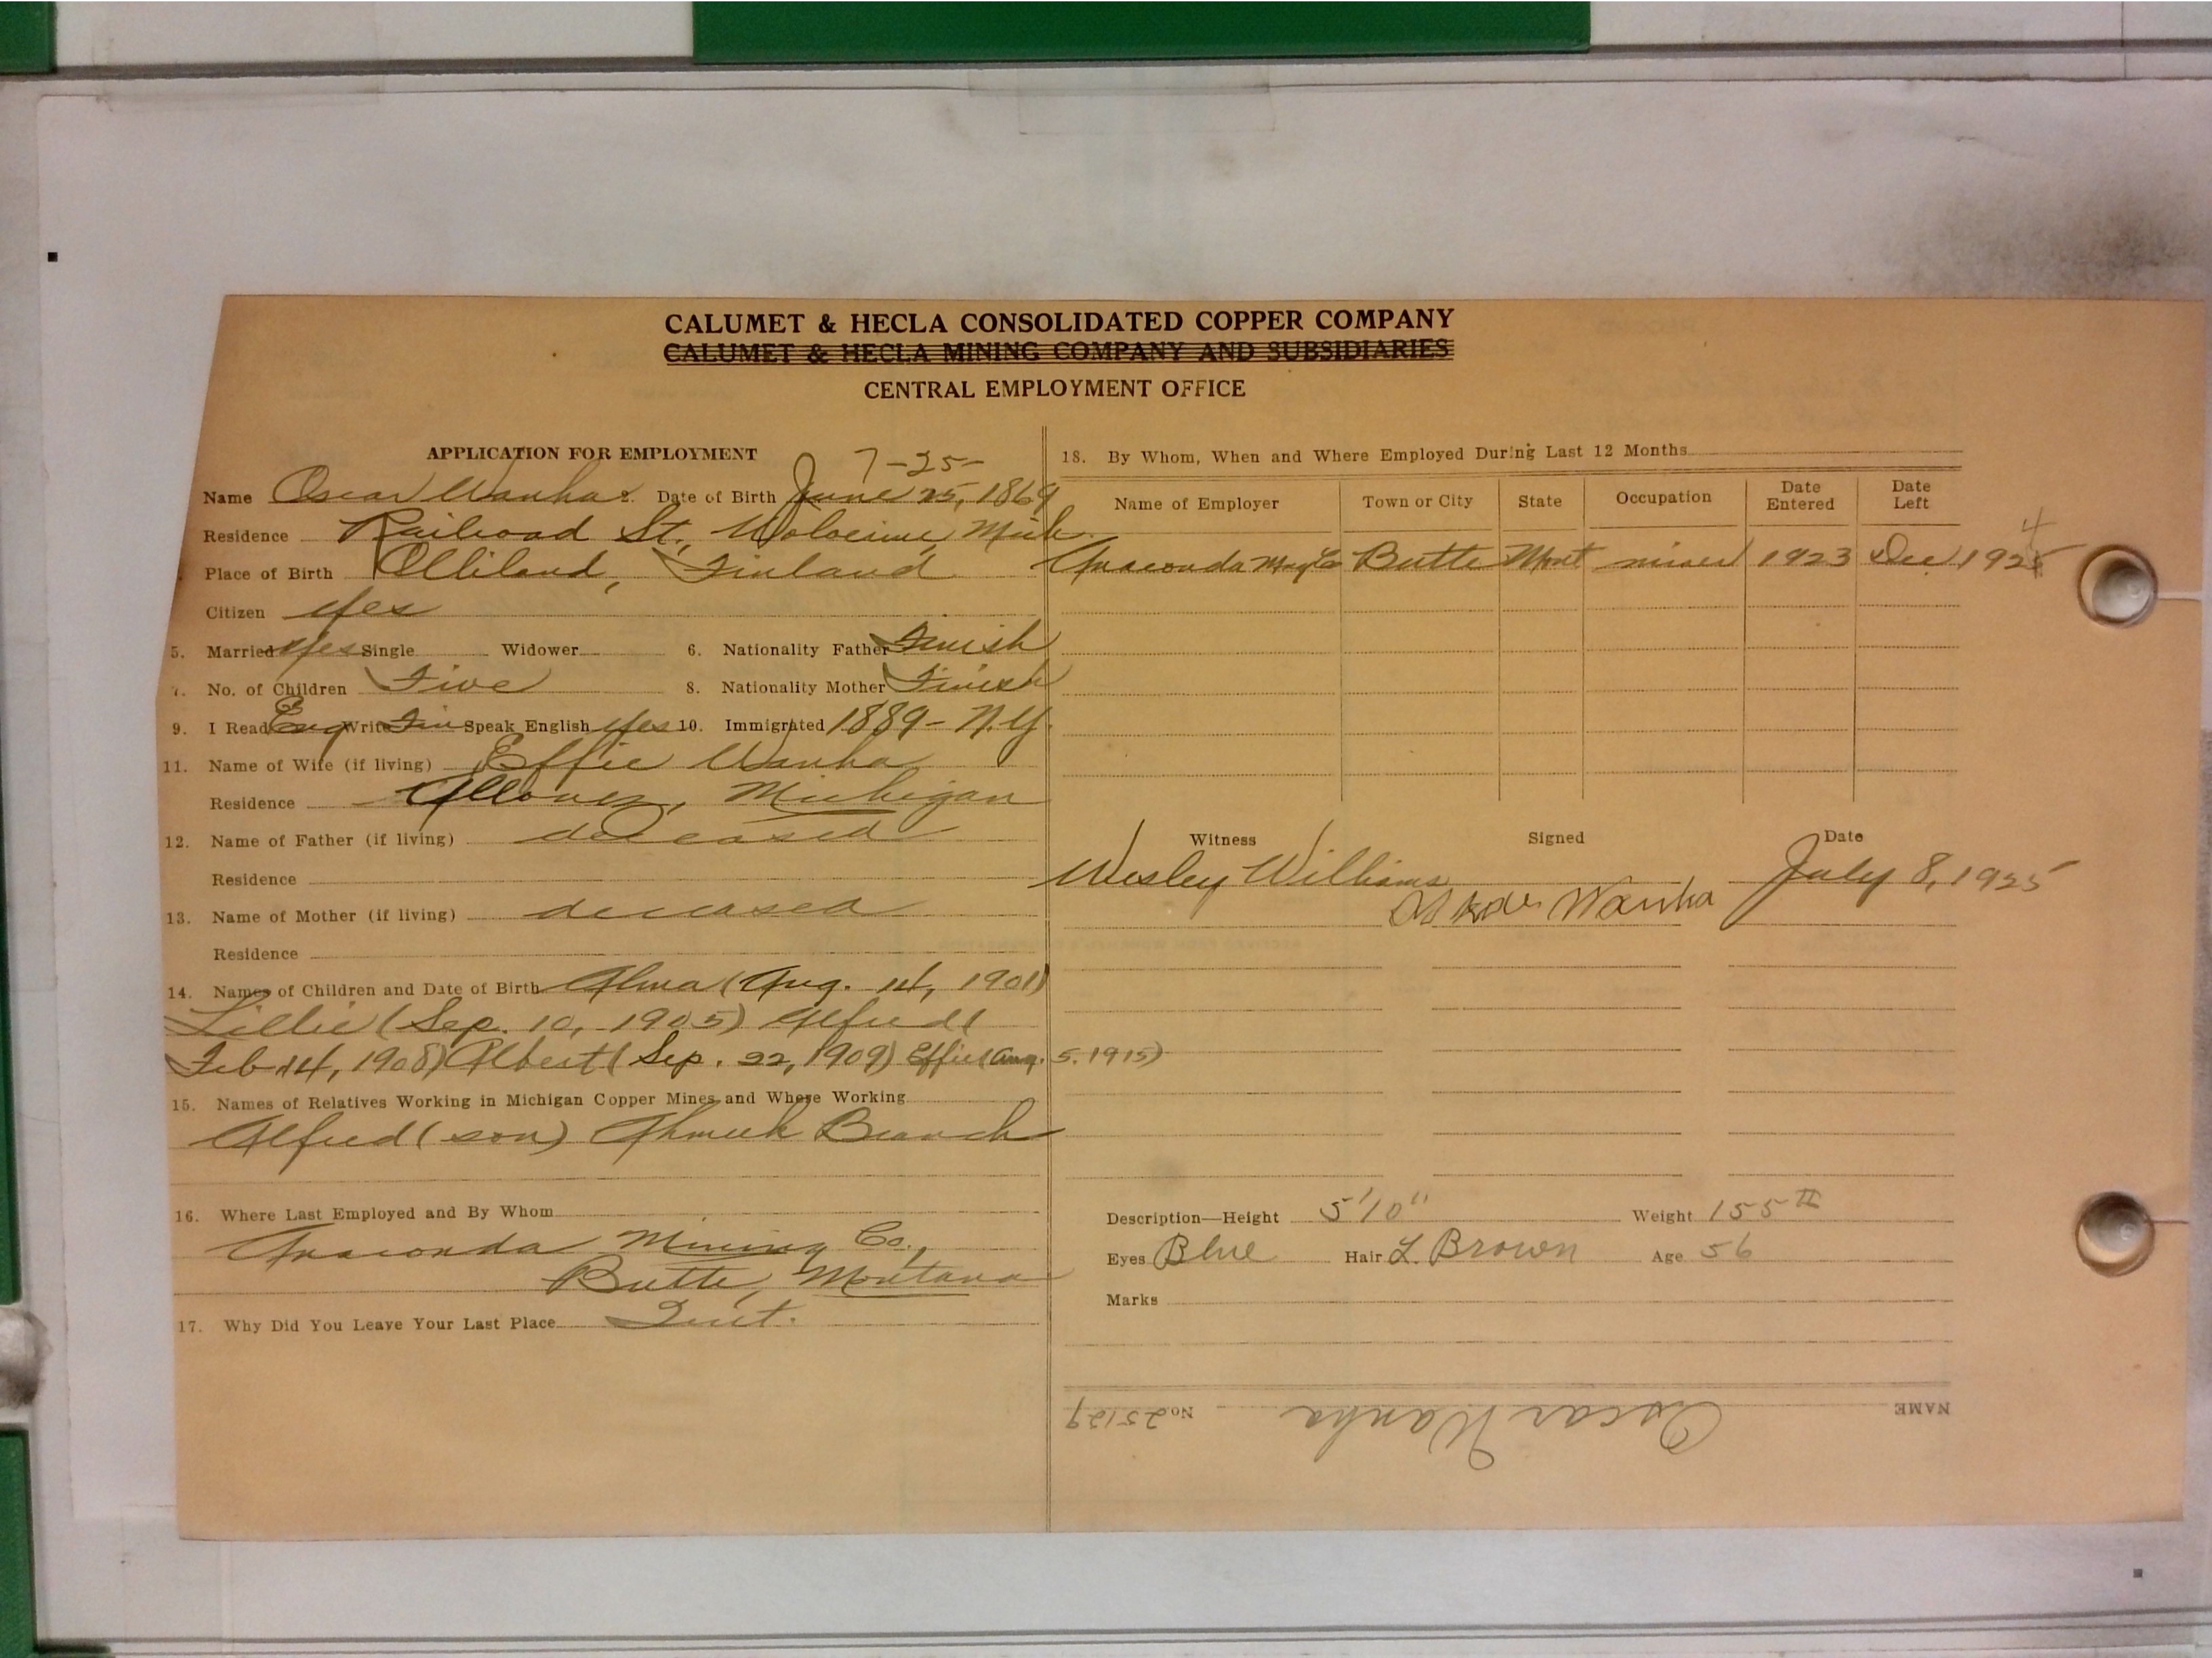 CALUMET & HECLA CONSOLIDATED COPPER COMPANY
CALUMET & HECLA MINING COMPANY AND SUBSIDIARIES
CENTRAL EMPLOYMENT OFFICE
APPLICATION FOR EMPLOYMENT 7-25-
Name Oscar Wanha Date of Birth June 25, 1869
Residence Railroad St, Wolverine Mich.
Place of Birth Olliland, Finland
Citizen Yes
5. Married Yes Single Widower 6. Nationality Father Finish
7. No. of Children Five 8. Nationality Mother Finish
9. I Read Eng Write Fin Speak English Yes 10. Immigrated 1889 - N.Y.
11. Name of Wife (if living) Effie Wanha
Residence Allouez, Michigan
12. Name of Father (if living) deceased
Residence
13. Name of Mother (if living) deceased
Residence
14. Names of Children and Date of Birth Alma (Aug. 14, 1901)
Lillie (Sep. 10, 1905) Alfred (
Feb 14, 1908) Albert (Sep. 22, 1909) Effie (Aug. 5. 1915)
15. Names of Relatives Working in Michigan Copper Mines and Where Working
Alfred (son) Ahmeek Branch
16. Where Last Employed and By Whom
Anaconda Mining Co.,
Butte, Montana
17. Why Did You Leave Your Last Place Quit.
18. By Whom, When and Where Employed During Last 12 Months
Name of Employer Town or City State Occupation Date Entered Date Left
Anaconda Butte Mont miner 1923 Dec 1924
Witness Signed Date
Wesley Williams Oskar Wanha July 8, 1925
Description—Height 5'10" Weight 155 #
Eyes Blue Hair L. Brown Age 56
Marks
NAME Oscar Wanha No. 25129